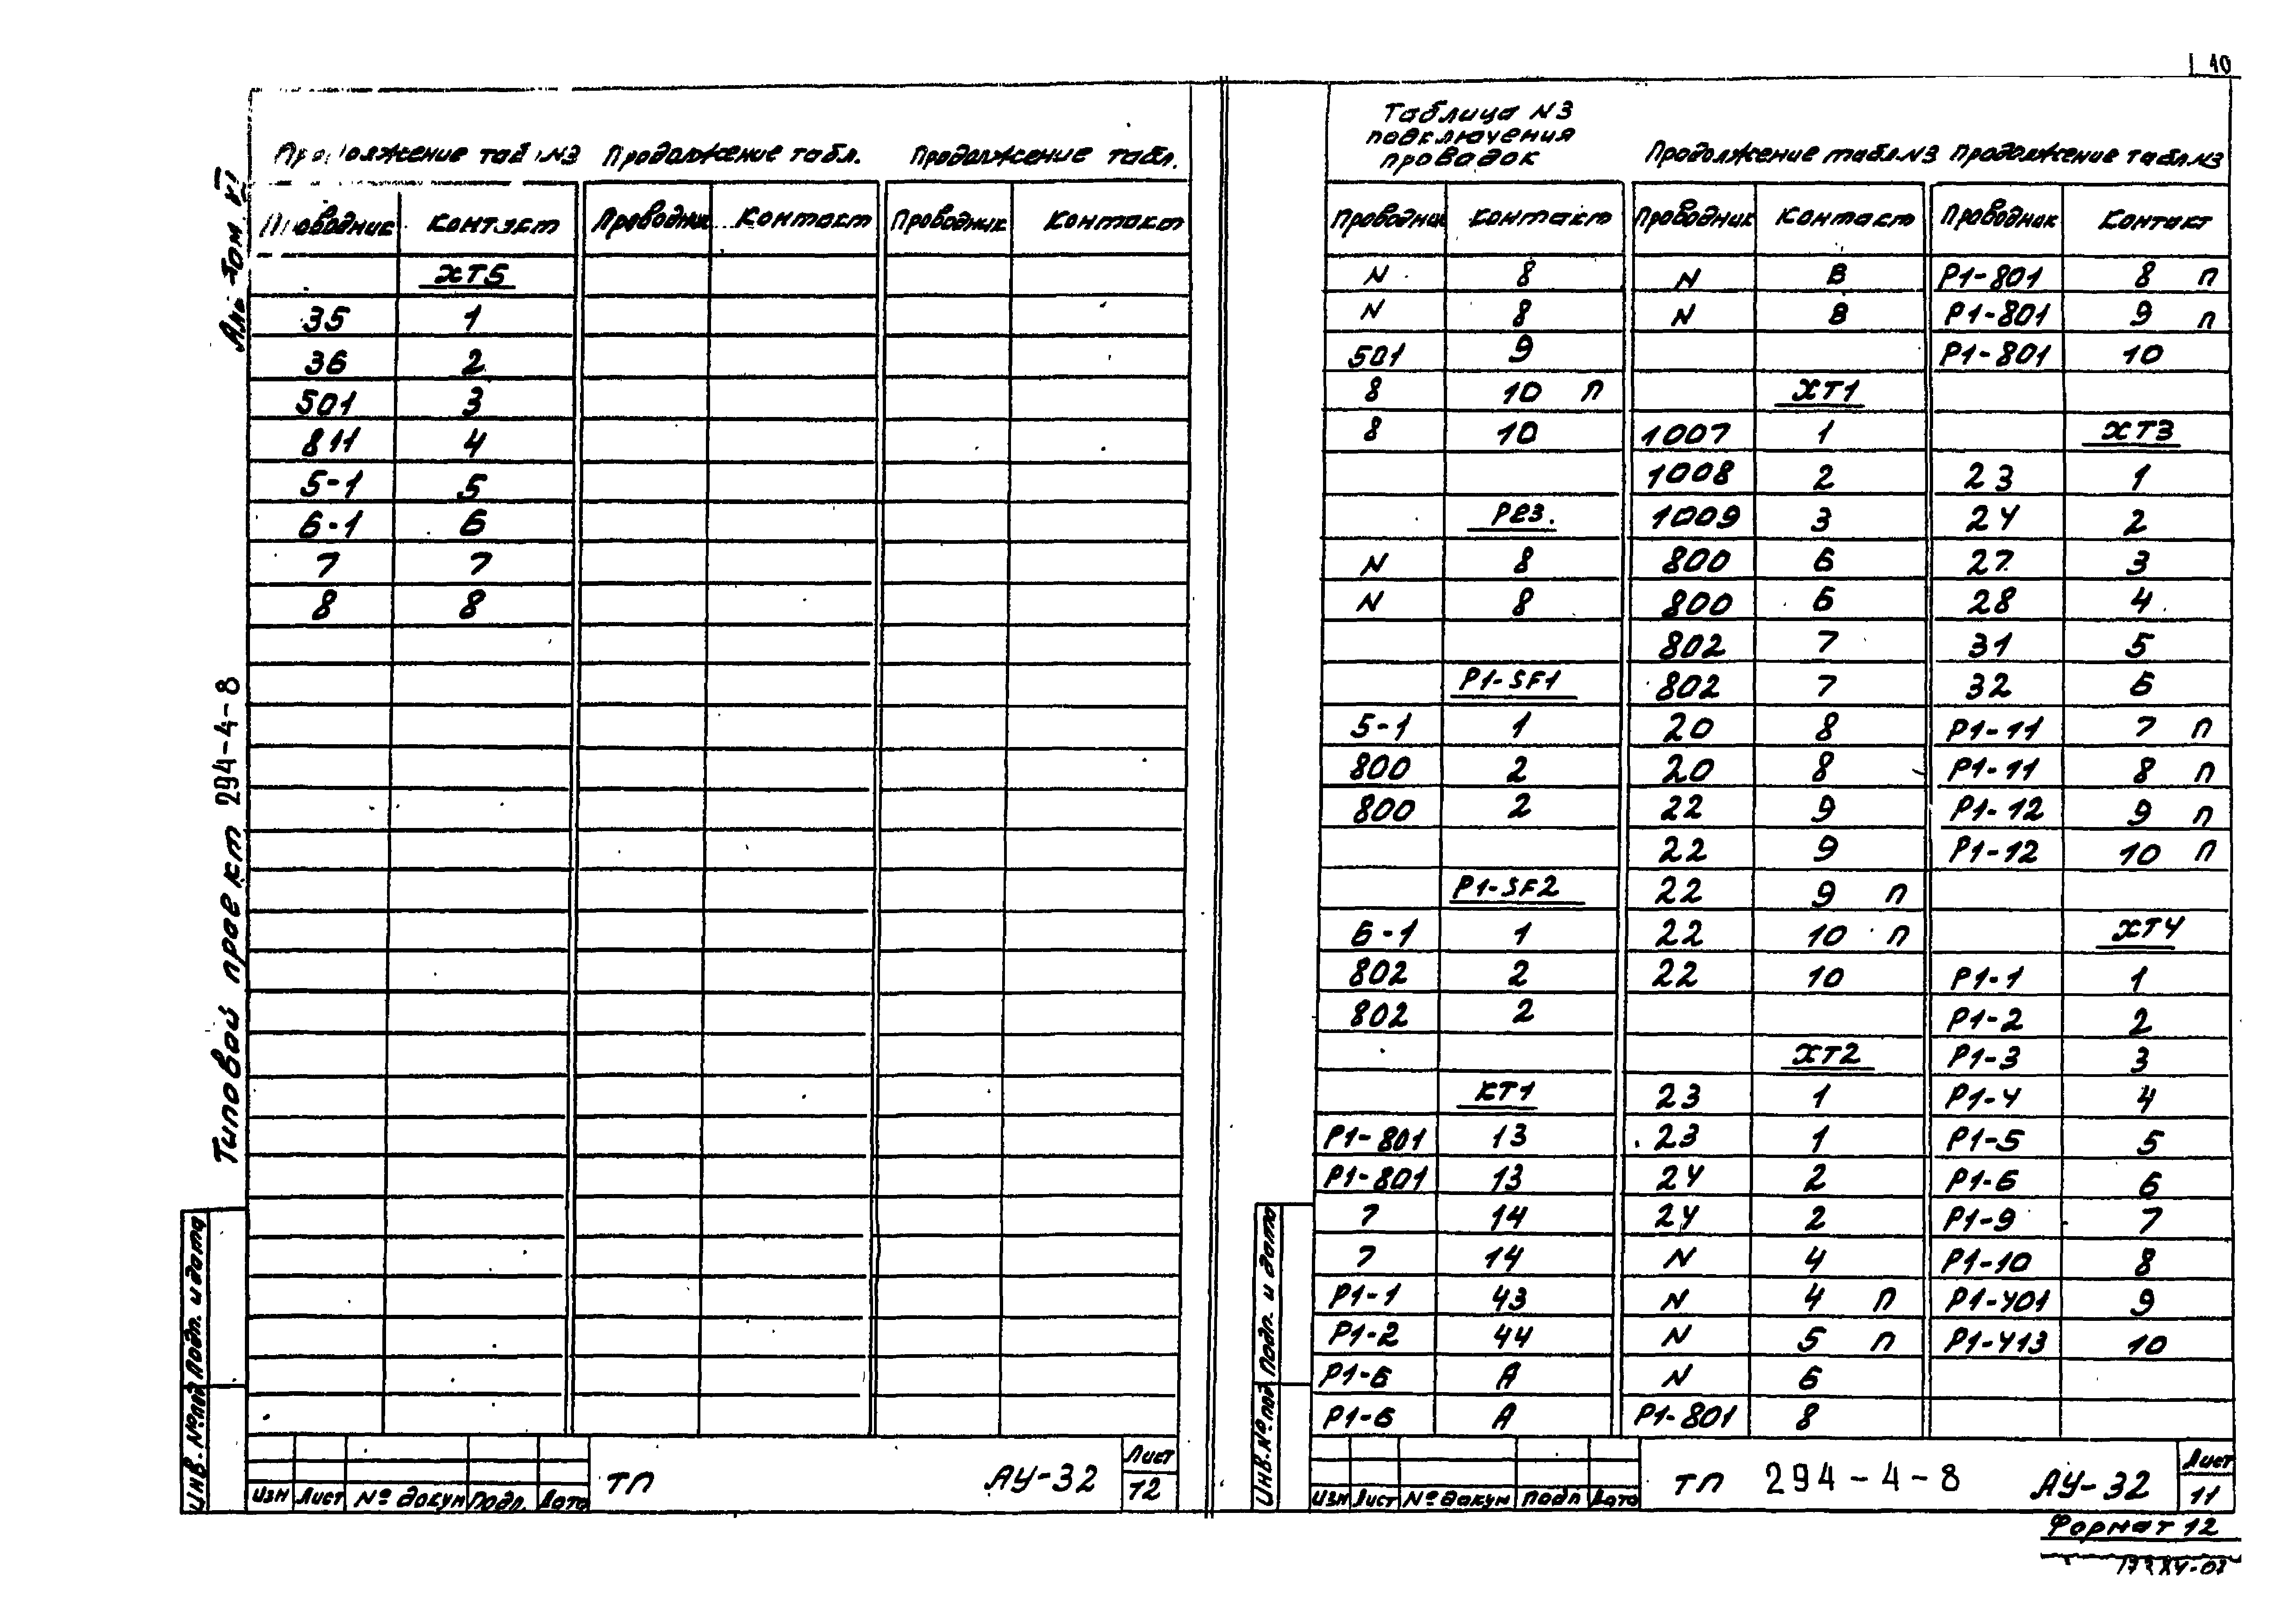 10
Продолжение табл.
Продолжение табл.
Проводник Контакт Проводник Контакт Проводник Контакт
ХТ5
35 1
36 2
501 3
811 4
5-1 5
6-1 6
7 7
8 8
Типовой проект 294-4-8
Подп. и дата
Инв. № под
Изм Лист № докум Подп. Дата
ТП
АУ-32
Лист
12
Таблица N3
подключения
проводок
Продолжение табл. N3
Продолжение табл. N3
Проводник Контакт Проводник Контакт Проводник Контакт
N 8 N В Р1-801 8 п
N 8 N В Р1-801 9 п
501 9 Р1-801 10
8 10 п ХТ1
8 10 1007 1 ХТ3
1008 2 23 1
Рез. 1009 3 24 2
N 8 800 6 27 3
N 8 800 6 28 4
802 7 31 5
Р1-SF1 802 7 32 6
5-1 1 20 8 Р1-11 7 п
800 2 20 8 Р1-11 8 п
800 2 22 9 Р1-12 9 п
22 9 Р1-12 10 п
Р1-SF2 22 9 п
6-1 1 22 10 п ХТ4
802 2 22 10 Р1-1 1
802 2 Р1-2 2
ХТ2 Р1-3 3
КТ1 23 1 Р1-4 4
Р1-801 13 23 1 Р1-5 5
Р1-801 13 24 2 Р1-6 6
7 14 24 2 Р1-9 7
7 14 N 4 Р1-10 8
Р1-1 43 N 4 п Р1-401 9
Р1-2 44 N 5 п Р1-413 10
Р1-6 А N 6
Р1-6 А Р1-801 8
Подп. и дата
Инв. № под
Изм Лист № докум Подп Дата
ТП 294-4-8
АУ-32
Лист
11
Формат 12